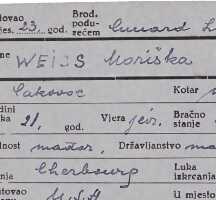 tovao Brod.
jes. 23. god. podu- Cunard L
zećem
ne WEISS Moriška
Čakovec Kotar
dini
ka 21. god. Vjera jevr. Bračno
stanje
dnost mađar, Državljanstvo ma
Cherbourg Luka
nja izkrcanja
itovao U.S.A U mjesto